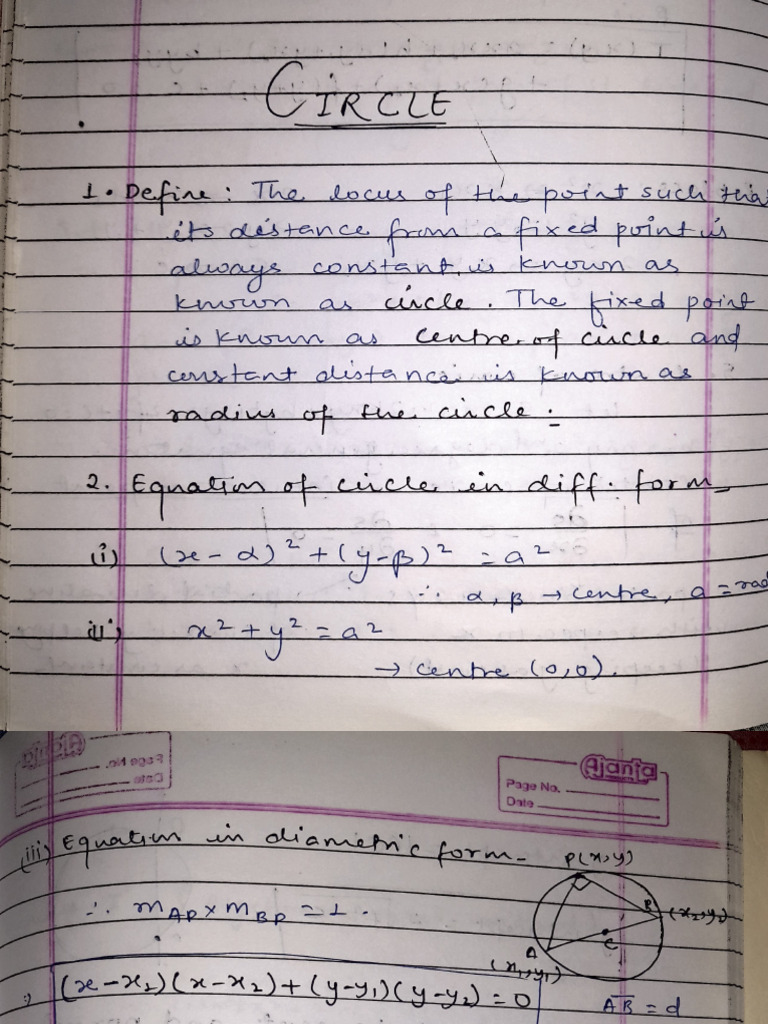 CIRCLE
1. Define : The locus of the point such tha
its distance from a fixed point is
always constant is known as
known as circle. The fixed point
is known as centre of circle and
constant distance is known as
radius of the circle :-
2. Equation of circle in diff. form_
(i) (x-α)² + (y-β)² = a²
∴ α, β → centre, a = rad
(ii) x² + y² = a²
→ centre (0,0).
Ajanta
Page No.
Date
Ajanta
Page No.
Date
(iii) Equation in diametric form-
P(x,y)
∴ mAP × mBP = 1.
B (x2,y2)
C
A
(x1,y1)
(x-x1)(x-x2)+(y-y1)(y-y2)=0
AB = d